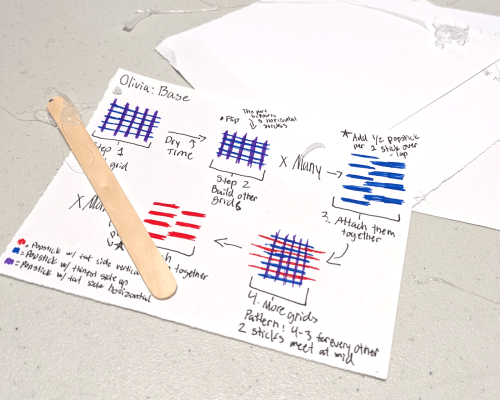 Olivia: Base
Step 1
grid
Dry
Time
Flip
The part
w/
5 horizontal
sticks
Step 2
Build other
grids
x Many
★ Add 1/2 popstick
per 1 stick over
lap
3. Attach them
together
4. More grids
Pattern: 4-3 for every other
2 sticks meet at mid
together
x Many
= Popstick w/ fat side vertical
= Popstick w/ thinnest side up
= Popstick w/ fat side horizontal